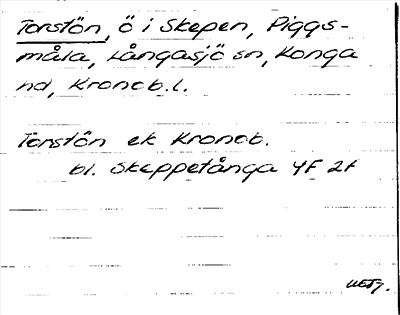 Torstön, ö i Skepen, Piggs-
måla, Långasjö sn, Konga
hd, Kronob.l.
Torstön ek Kronob.
bl. Skeppetånga 4F 2f